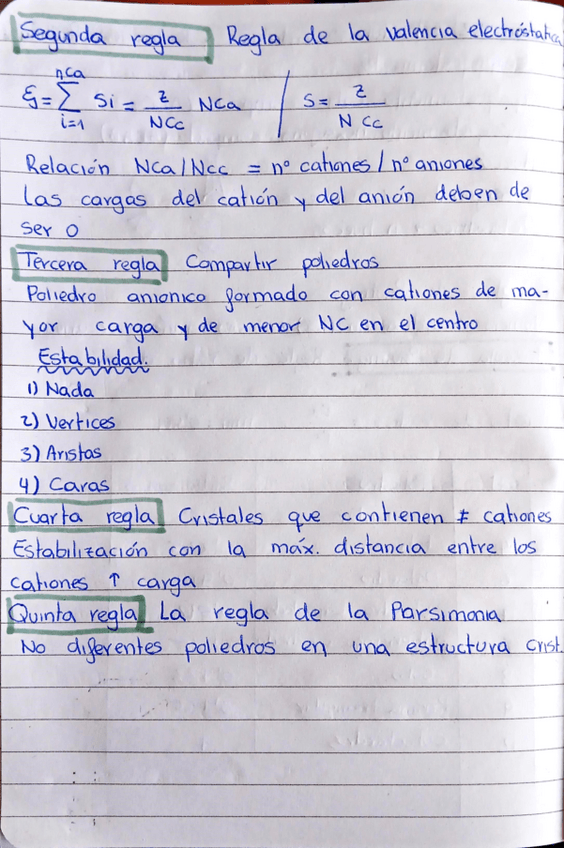 Segunda regla Regla de la valencia electróstatica
ξ = ∑ᵢ₌₁ⁿᶜᵃ Si = z/NCc NCa / S = z/N Cc
Relación NCa/Ncc = nº cationes / nº aniones
Las cargas del catión y del anión deben de
ser 0
Tercera regla Compartir poliedros
Poliedro anionico formado con cationes de ma-
yor carga y de menor NC en el centro
Estabilidad.
1) Nada
2) Vertices
3) Aristas
4) Caras
Cuarta regla Cristales que contienen ≠ cationes
Estabilización con la máx. distancia entre los
cationes ↑ carga
Quinta regla La regla de la Parsimonia
No diferentes poliedros en una estructura crist.